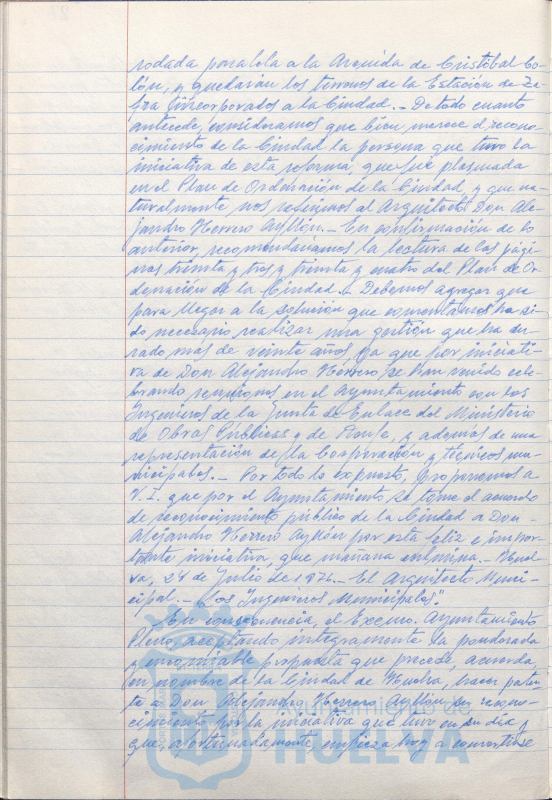 rodada paralela a la Avenida de Cristóbal Co-
lón, y quedarán los terrenos de la Estación de Za-
fra incorporados a la Ciudad.- De todo cuanto
antecede, consideramos que bien merece el recono-
cimiento de la Ciudad la persona que tuvo la
iniciativa de esta reforma, que fue plasmada
en el Plan de Ordenación de la Ciudad, y que na-
turalmente nos referimos al Arquitecto Don Ale-
jandro Herrero Ayllón.- En confirmación de lo
anterior, recomendamos la lectura de las pági-
nas treinta y tres y treinta y cuatro del Plan de Or-
denación de la Ciudad.- Debemos agregar que
para llegar a la solución que comentamos ha si-
do necesario realizar una gestión que ha du-
rado más de veinte años ya que por iniciati-
va de Don Alejandro Herrero se han venido cele-
brando reuniones en el Ayuntamiento con los
Ingenieros de la Junta de Enlace del Ministerio
de Obras Públicas y de Renfe, y además de una
representación de la Corporación y técnicos mu-
nicipales.- Por todo lo expuesto, proponemos a
V. I. que por el Ayuntamiento se tome el acuerdo
de reconocimiento público de la Ciudad a Don
Alejandro Herrero Ayllón por esta feliz e impor-
tante iniciativa, que mañana culmina.- Huel-
va, 28 de Julio de 1976.- El Arquitecto Muni-
cipal.- Los Ingenieros Municipales".
En consecuencia, el Excmo. Ayuntamiento
Pleno, aceptando íntegramente la ponderada
y encomiable propuesta que precede, acuerda,
en nombre de la Ciudad de Huelva, hacer paten-
te a Don Alejandro Herrero Ayllón su recono-
cimiento por la iniciativa que tuvo en su día y
que, afortunadamente, empieza hoy a convertirse
Ayuntamiento de
HUELVA